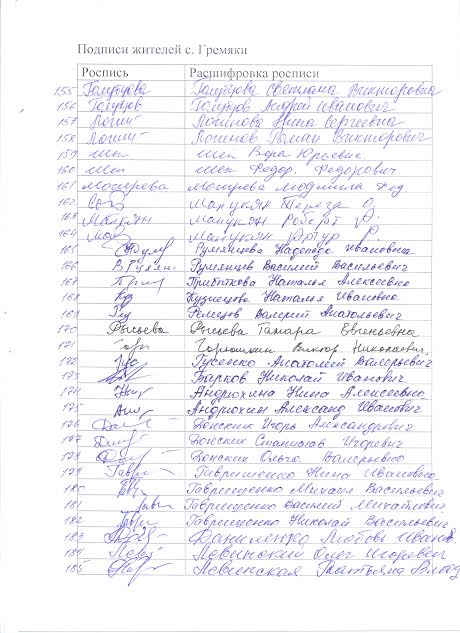 Подписи жителей с. Гремяки
Роспись Расшифровка росписи
155 Светлана Викторовна
156 Андрей Иванович
157 Логинова Нина Сергеевна
158 Логинов Роман Викторович
159 Шен Шен Вера Юрьевна
160 Шен Шен Федор Федорович
161 Людмила
162 Манукян Тереза О.
163 Манукян Манукян Роберт А.
164 Манукян Артур Р.
165 Румянцева Надежда Ивановна
166 Румянцев Василий Васильевич
167 Прибыткова Наталья Алексеевна
168 Кузнецова Наталья Ивановна
169 Ремезов Валерий Анатольевич
170 Фысьева Тамара Евгеньевна
171 Горюшкин Виктор Николаевич
172 Гус Гусенко Анатолий Валерьевич
173 Барков Николай Иванович
174 Андрюхина Нина Алексеевна
175 Андрюхин Александ Иванович
176 Донских Игорь Александрович
177 Донских Станислав Игоревич
178 Донских Ольга Валерьевна
179 Гаври Гаврищенко Нина Ивановна
180 Гаврищенко Михаил Васильевич
181 Гаврищенко Василий Михайлович
182 Гаврищенко Николай Васильевич
183 Даниленко Любовь Иванов
184 Левинский Олег Игоревич
185 Левинская Татьяна Влад